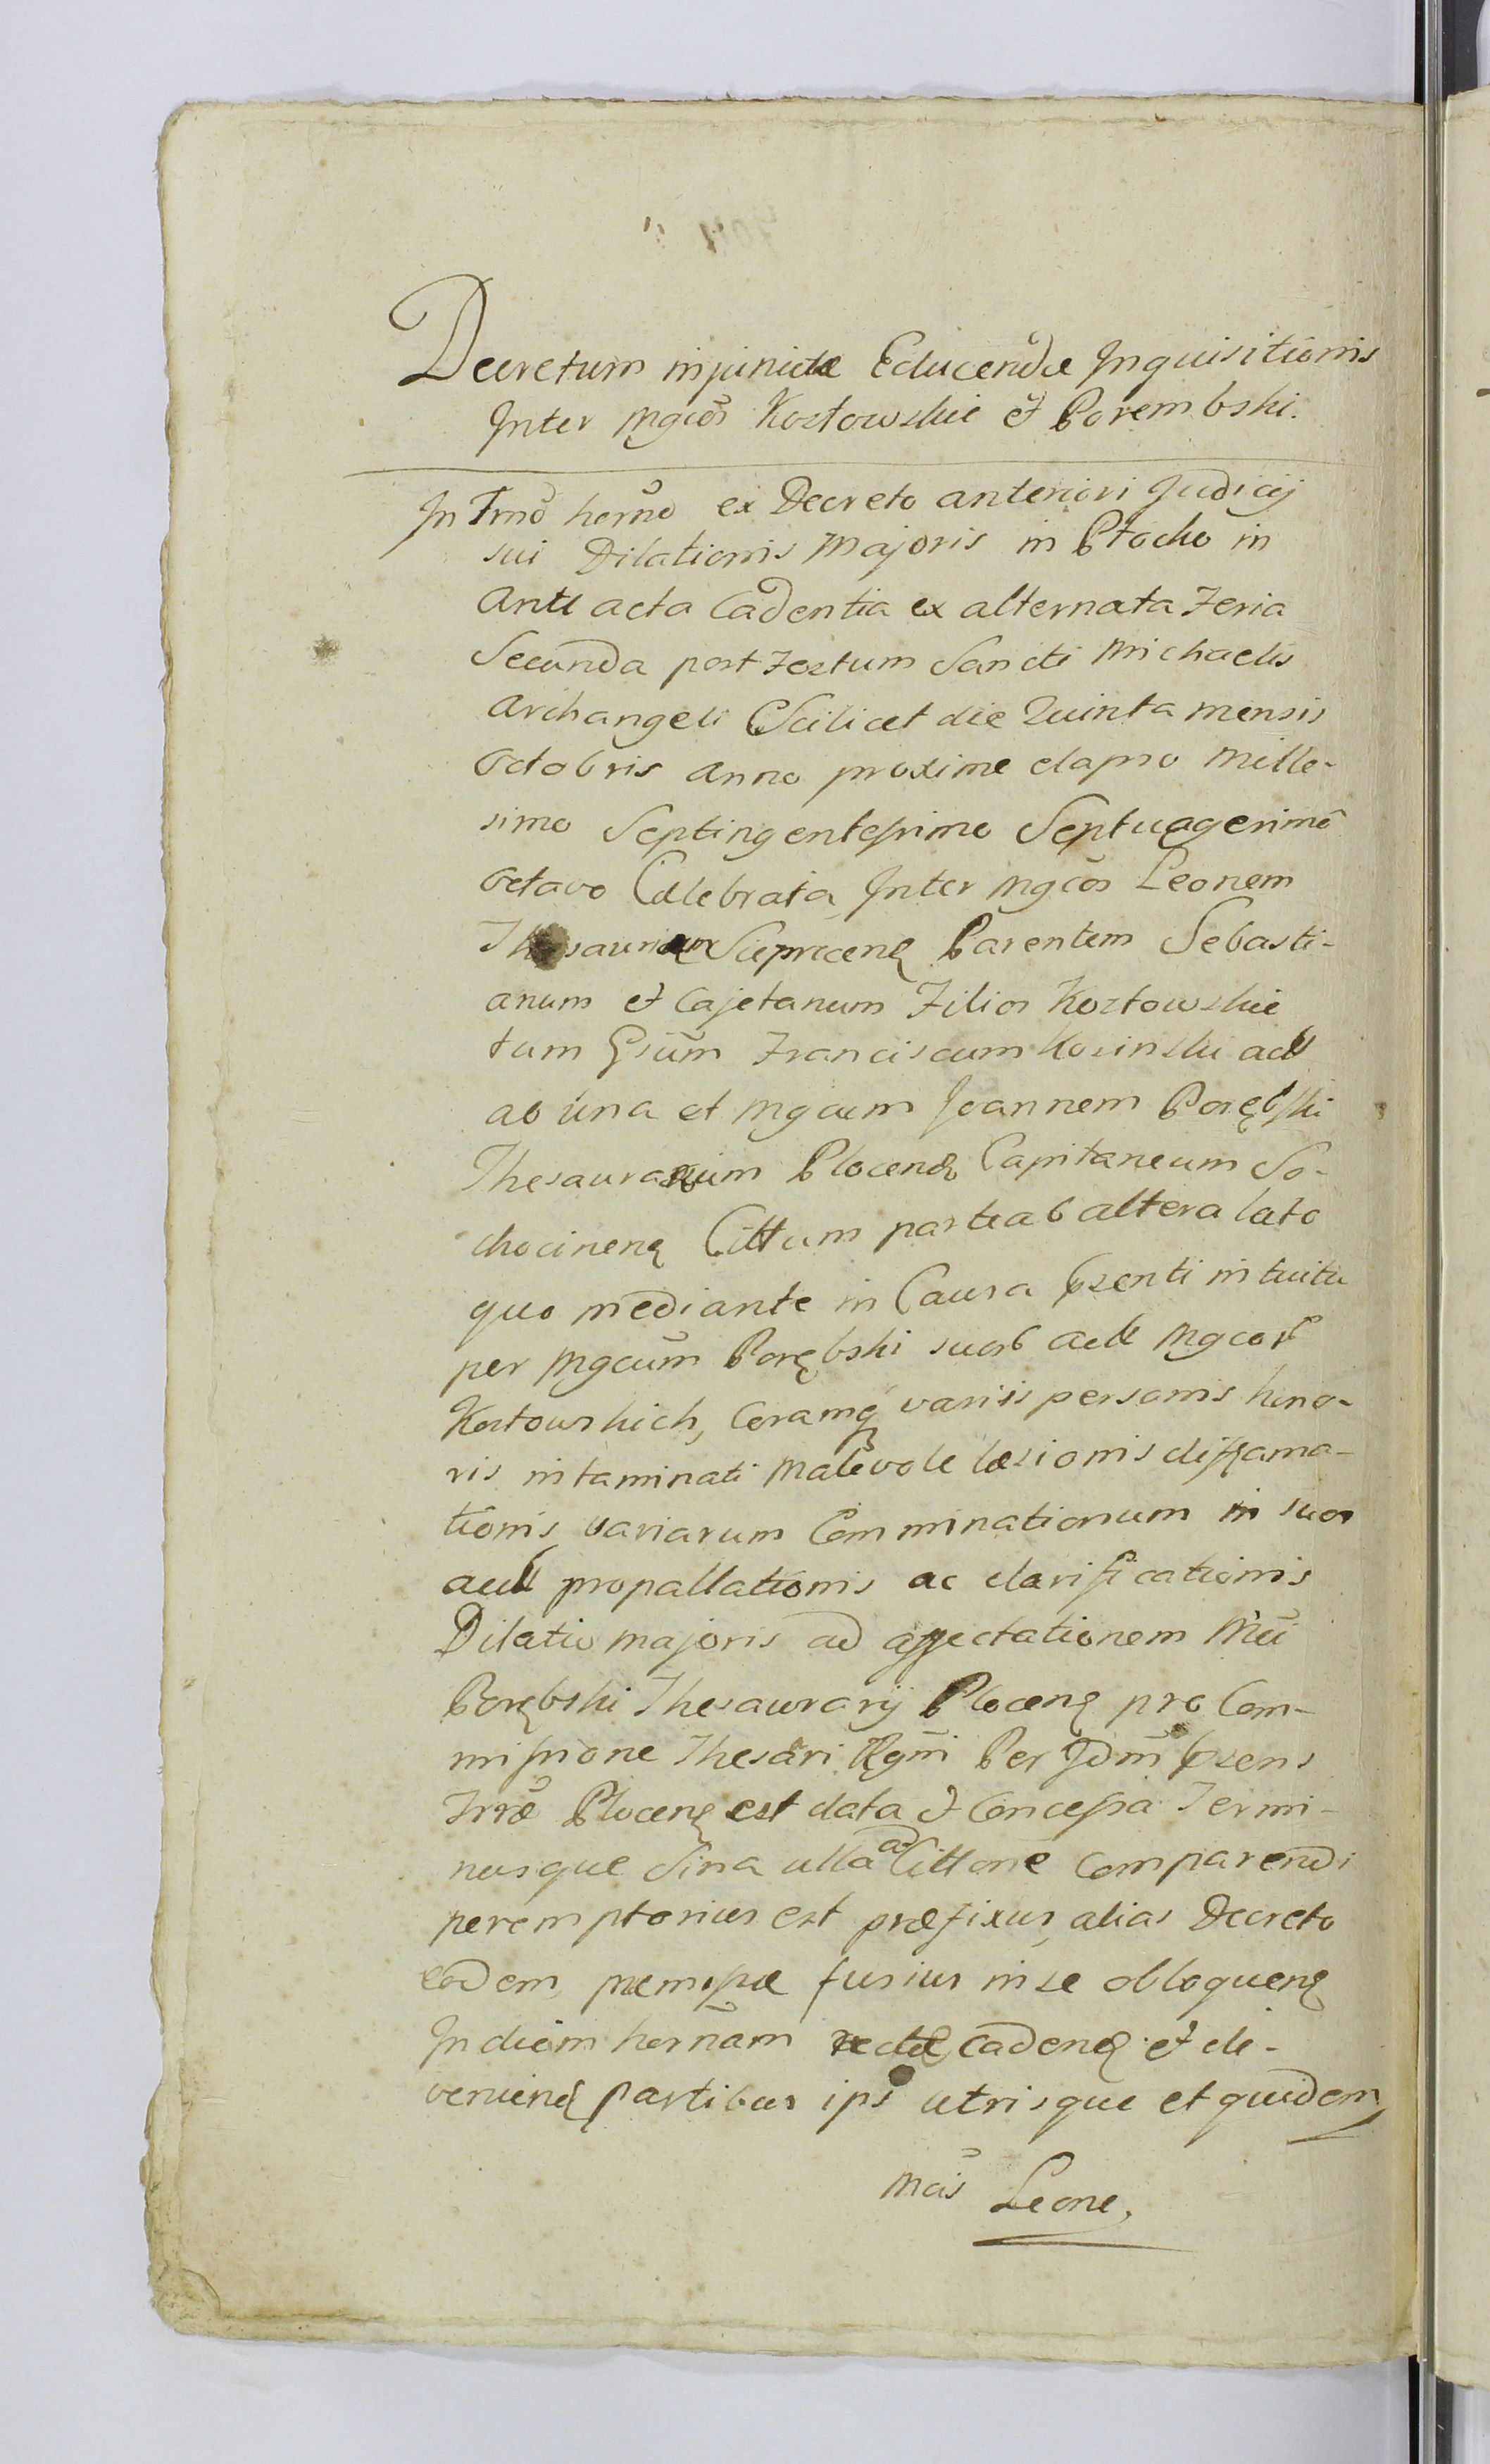 Decretum injunctæ Educendæ Inquisitionis
Inter Mgcos Kozłowskie et Porembski.
In Trno herno ex Decreto anteriori Judicij
sui Dilationis Majoris in Płocko in
Ante acta Cadentia ex alternata Feria
Secunda post Festum Sancti Michaelis
Archangeli Scilicet die Quinta mensis
Octobris Anno proxime elapso Mille-
simo Septingentesimo Septuagesimo
Octavo Celebrata, Inter Mgcos Leonem
Thesaurarium Sieprcens Parentem Sebasti-
anum et Cajetanum Filios Kozłowskie
tum Gsum Franciscum Kosinski act
ab una et Mgcum Joannem Porębski
Thesaurarium Plocens Capitaneum So-
chocinens Cittum parte ab altera lato
quo mediante in Causa psenti intuitu
per Mgcum Porębski suorb act Mgcor
Kozłowskich, Coramq variis personis hono-
ris intaminati Malevole læsionis diffama-
tionis, variarum Comminationum in suos
act propallationis ac clarificationis
Dilatio majoris ad affectationem Mci
Porębski Thesaurarij Plocens pro Com-
missione Thesauri Rgni Per Jdm psens
Trræ Plocens est data et Concessa Termi-
nusque Sina ulla a Cittone Comparendi
peremptorius est præfixus, alias Decreto
eodem præmissæ fusius in se obloquens
In diem hernam recte Cadens et de-
veniens partibus ips utrisque et quidem
Mcis Leone,